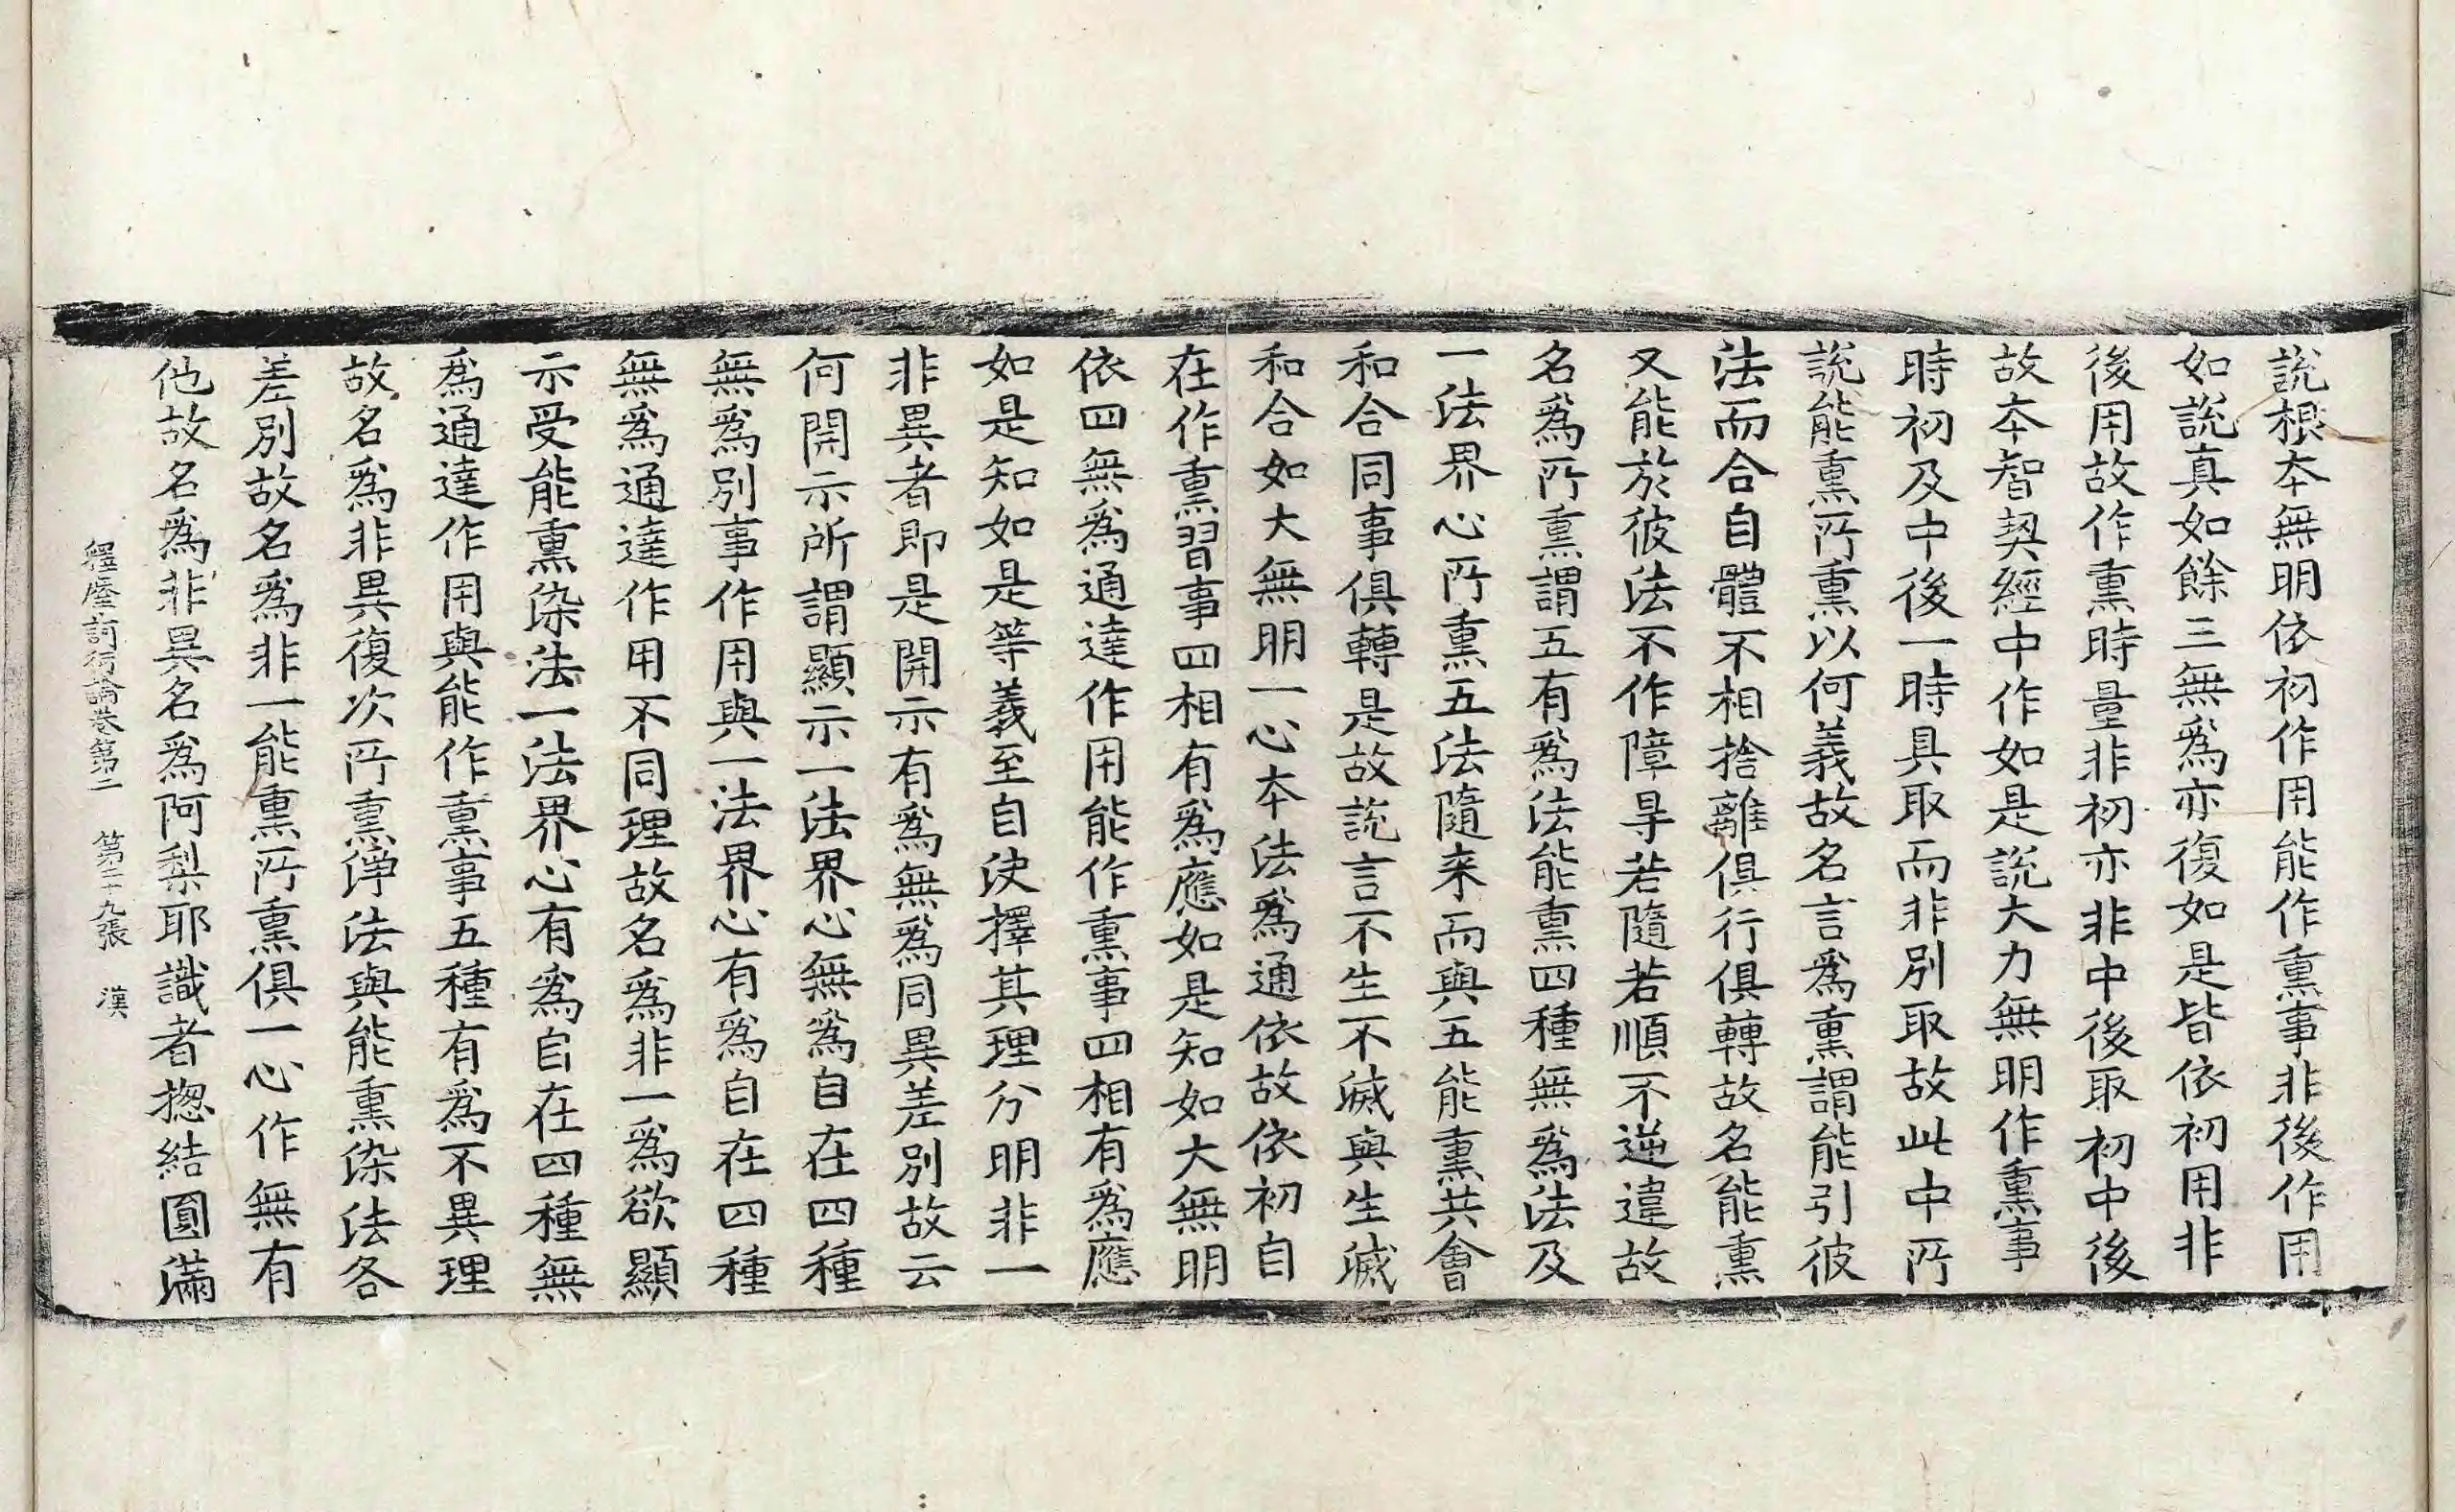 説根本無明依初作用能作熏事非後作用
如説真如餘三無爲亦復如是皆依初用非
後用故作熏時量非初亦非中後取初中後
故本智契經中作如是説大力無明作熏事
時初及中後一時具取而非別取故此中所
説能熏所熏以何義故名言爲熏謂能引彼
法而合自體不相捨離俱行俱轉故名能熏
又能於彼法不作障㝵若隨若順不逆違故
名爲所熏謂五有爲法能熏四種無爲法及
一法界心所熏五法隨来而與五能熏共會
和合同事俱轉是故説言不生不滅與生滅
和合如大無明一心本法爲通依故依初自
在作熏習事四相有爲應如是知如大無明
依四無爲通達作用能作熏事四相有爲應
如是知如是等義至自決擇其理分明非一
非異者即是開示有爲無爲同異差別故云
何開示所謂顯示一法界心無爲自在四種
無爲別事作用與一法界心有爲自在四種
無爲通達作用不同理故名爲非一爲欲顯
示受能熏染法一法界心有爲自在四種無
爲通達作用與能作熏事五種有爲不異理
故名爲非異復次所熏淨法與能熏染法各
差別故名爲非一能熏所熏俱一心作無有
他故名爲非異名爲阿梨耶識者揔結圓滿
釋摩訶衍論卷第二　第二十九張　漢